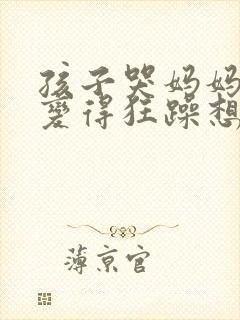 孩子哭妈妈
变得狂躁想
薄京官